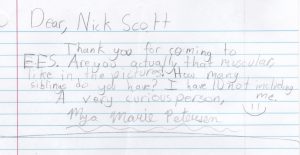 Dear, Nick Scott
Thank you for coming to
EES. Are you actually that muscular
like in the pictures? How many
siblings do you have? I have 10 not including
A very curious person, me.
Mya Marie Petersen